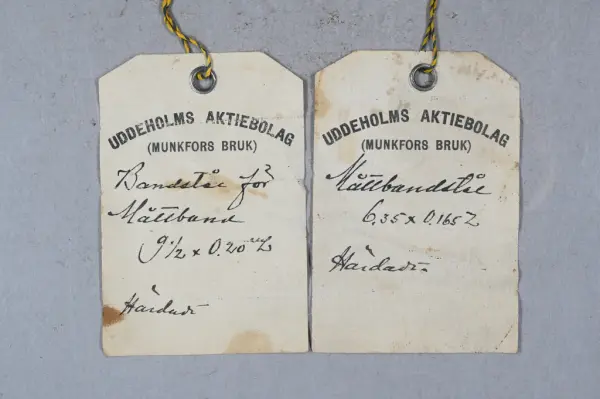 UDDEHOLMS AKTIEBOLAG
(MUNKFORS BRUK)
Bandstål för
Måttband
9 1/2 x 0.20 m/m
Härdadt
UDDEHOLMS AKTIEBOLAG
(MUNKFORS BRUK)
Måttbandstål
6,35 x 0.165
Härdadt